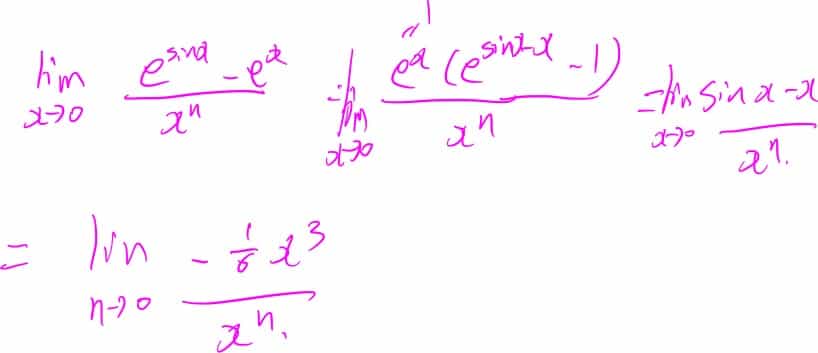 lim_{x→0} \frac{e^{sinx} - e^x}{x^n} = lim_{x→0} \frac{e^x (e^{sinx-x} - 1)}{x^n} = lim_{x→0} \frac{sin x - x}{x^n.}
= lim_{n→0} \frac{-\frac{1}{6} x^3}{x^n.}